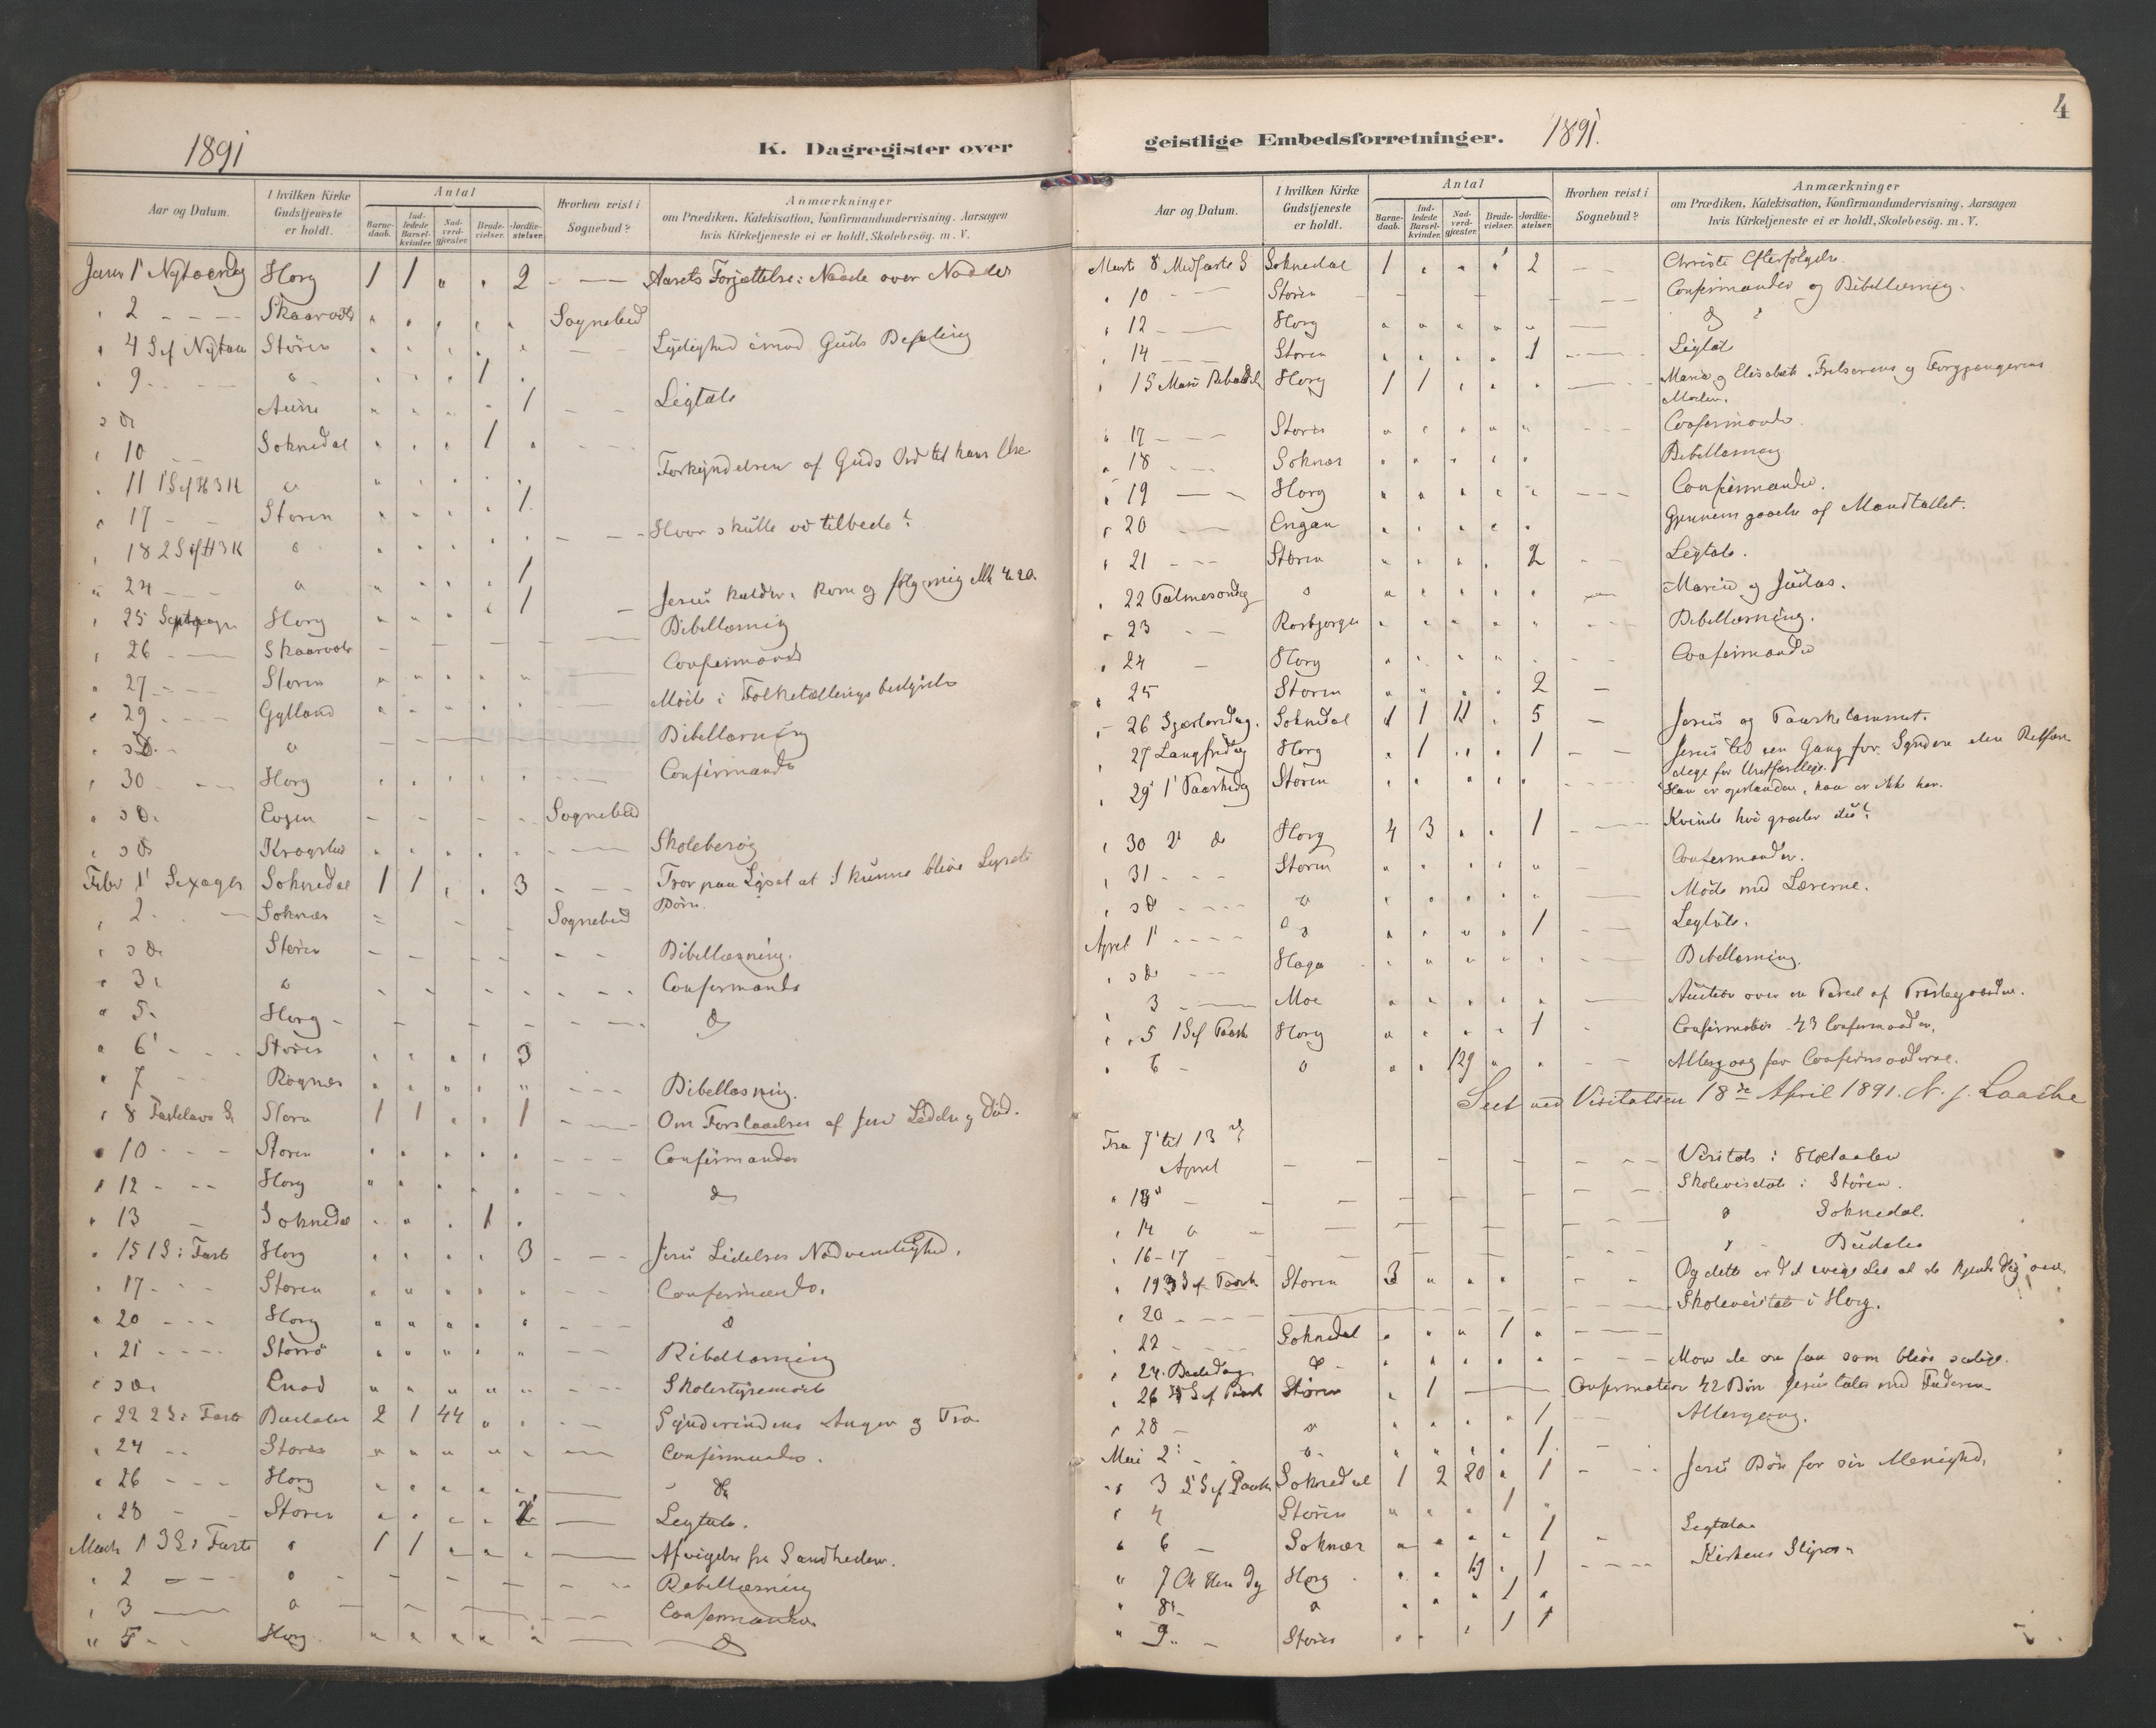 1891
K. Dagregister over
Aar og Datum.
I hvilken Kirke Gudstjeneste er holdt.
Antal
Barne-daab.
Ind-ledede Barsel-kvinder.
Nad-verd-gjæster.
Brude-vielser.
Jordfæ-stelser.
Hvorhen reist i Sognebud?
Anmærkninger
om Prædiken, Katekisation, Konfirmandundervisning. Aarsagen
hvis Kirketjeneste ei er holdt, Skolebesög. m. V.
Januar 1 Nytaarsdag Horg 1 1 " " 2 Aarets Forjættelse: Naade over Naade
" 2 Sognebud
" 4 S ef Nytaar Støren Lydighed imod Guds Befaling
" 9 " 1
" do 1 Ligtale
" 10 Soknedal 1
" 11 1 S ef H3K " Forkyndelsen af Guds Ord til hans
" 17 Støren 1
" 18 2 S ef H3K " Hvor skulle vi tilbede?
" 24 " 1
" 25 Septuages Horg 1 Jesus kalder: Kom og følg mig
" 26 Bibellæsning
" 27 Støren Confirmander
" 29 Gylland Møde i Folketællings bestyrelse
" do " Bibellæsning
" 30 Horg Confirmander
" do Sognebud
" do Skolebesøg
Febr 1 Sexages Soknedal 1 1 " " 3 Tror paa Lyset at I kunne blive Lysets
Børn.
" 2 Soknes Sognebud
" do Støren Bibellæsning.
" 3 " Confirmander
" 5 Horg do
" 6 Støren 3
" 7 Rognes Bibellæsning.
" 8 Fastelavns S 1 1 1 Om Forstaaelsen af Jesu Lidelse og Død.
" 10 Støren Confirmander
" 12 Horg do
" 13 Soknedal 1
" 15 1 S i Faste Horg 3 Jesu Lidelses Nødvendighed.
" 17 Støren Confirmander.
" 20 Horg do
" 21 Bibellæsning
" do Skolestyremøde
" 22 2 S i Faste Budalen 2 1 44 Synderindens Anger og Tro
" 24 Støren Confirmander.
" 26 Horg do
" 28 Støren 2 Ligtale.
Marts 1 3 S i Faste " 1 1 Afvigelse fra Sandheden.
" 2 " Bibellæsning
" 3 " Confirmander
" 5 Horg do
4
geistlige Embedsforretninger.
1891.
Aar og Datum.
I hvilken Kirke Gudstjeneste er holdt.
Antal
Barne-daab.
Ind-ledede Barsel-kvinder.
Nad-verd-gjæster.
Brude-vielser.
Jordfæ-stelser.
Hvorhen reist i Sognebud?
Anmærkninger
om Prædiken, Katekisation, Konfirmandundervisning, Aarsagen
hvis Kirketjeneste ei er holdt, Skolebesög. m. V.
Marts 8 Midfaste S Soknedal 1 2 Christi Efterfølgelse
" 10 Støren Confirmander og Bibellæsning.
" 12 Horg do
" 14 Støren 1 Ligtale
" 15 Mariæ Bebudel Horg 1 1 Maria og Elisabeth. Frelserens og Forgjængerens
Moder.
" 17 Støren Confirmander.
" 18 Soknes Bibellæsning
" 19 Horg Confirmander.
" 20 Engan Gjennemgaaelse af Mandtallet.
" 21 Støren 2 Ligtale.
" 22 Palmesøndag " Maria og Judas.
" 23 Bibellæsning.
" 24 Horg Confirmander
" 25 Støren 2
" 26 Skjærtorsdag Soknedal 1 1 11 5 Jesus og Paaskelammet.
" 27 Langfredag Horg 1 1 Jesus led een Gang for Syndere den Retfær-
dige for Uretfærdige.
" 29 1 Paaskedag Støren Han er opstanden, han er ikke her.
" 30 2 do Horg 4 3 1 Kvinde hvi græder du?
" 31 Støren Confirmander.
" do " Møde med Lærerne.
April 1 " 1 Ligtale.
" do Haga Bibellæsning.
3 Moe Auction over en Parcel af Prestegaarden.
" 5 1 S ef Paaske Horg 1 Confirmation 43 Confirmander.
" 6 " 129 Altergang for Confirmanderne.
Seet ved Visitatsen 18de April 1891. N. J. Laache
Fra 7 til 13
April Visitats i Holtaalen
" 13 Skolevisitats i Støren.
" 14 " Soknedal.
" 16-17 " Budalen
" 19 3 S ef Paaske Støren 3 Og dette er det evige Liv at de kjende dig
" 20 Skolevisitats i Horg.
" 22 Soknedal 1
" 24. Bededag do Mon de ere faa som blive salige.
" 26 4 S ef Paask Støren 1 Confirmation 42 Børn Jesus taler med Faderen
" 28 " 1 Altergang.
Mai 2 " 1
" 3 5 S ef Paask Soknedal 1 2 20 1 Jesu Bøn for sin Menighed.
" 4 Støren 1
" 6 Soknes 1 Ligtale
" 7 Chr Him Dg Horg 1
" 8 " 1
" 9 Støren 1 1